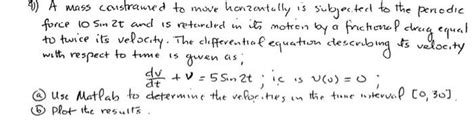 9) A mass constrained to move horizontally is subjected to the periodic
force 10 Sin 2t and is retarded in its motion by a frictional drag equal
to twice its velocity. The differential equation describing its velocity
with respect to time is given as;
dv/dt + v = 5 Sin 2t ; ic is v(0) = 0 ;
ⓐ Use Matlab to determine the velocities in the time interval [0, 30].
ⓑ Plot the results.